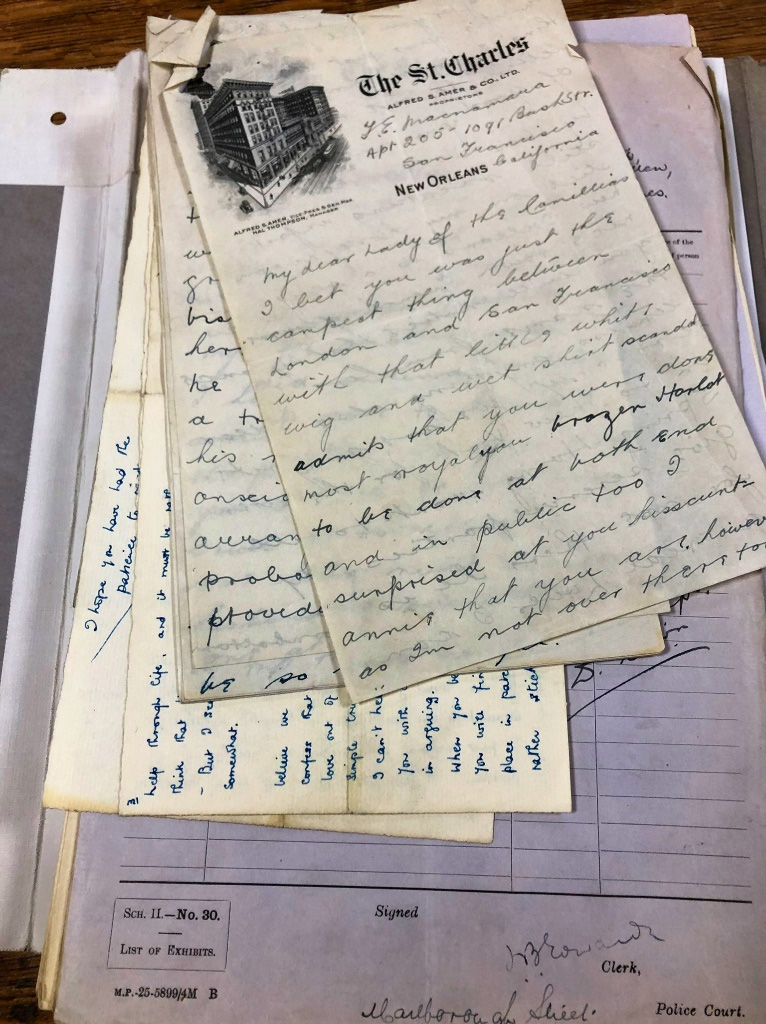 The St. Charles
ALFRED S. AMER & CO. LTD.
PROPRIETORS
Apt 205 - 1091 Bush Str.
San Francisco
NEW ORLEANS California
ALFRED S. AMER, VICE-PRES & GEN MGR
HAL THOMPSON, MANAGER
My dear Lady of the Camillias
I bet you was just the
campest thing between
London and San Francisco
with that little white
wig and wet shirt
admits that you were done
most royal you brazen Harlot
to be done at both end
and in public too I
surprised at you
that you are, however
as Im not over there to
gr
bis
her
he
a tr
his
arran
proba
provid
be so
I hope you have had the
patience to
3
help through life, and it must be
think that
- But I
somewhat.
believe we
confess that
love out of
simple
I can't
you with
in arguing.
When you
you will
place in
rather
of the
person
SCH. II.—No. 30.
LIST OF EXHIBITS.
M.P.-25-5899/4M B
Signed
Clerk,
Marlborough Street.
Police Court.